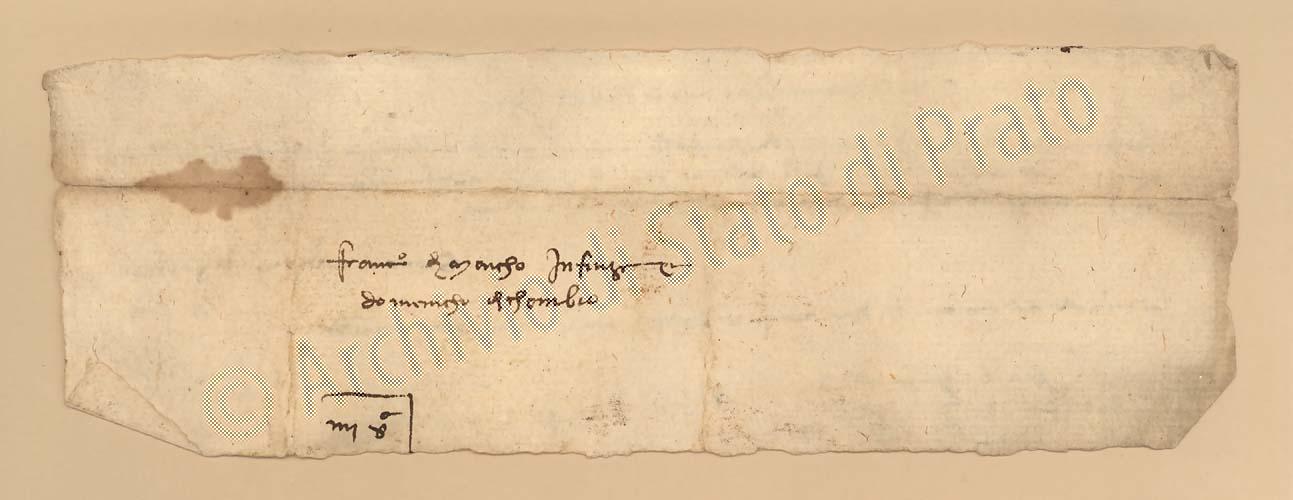 Franc.o di Marcho In firenze e
domenicho di chambio
© Archivio di Stato di Prato